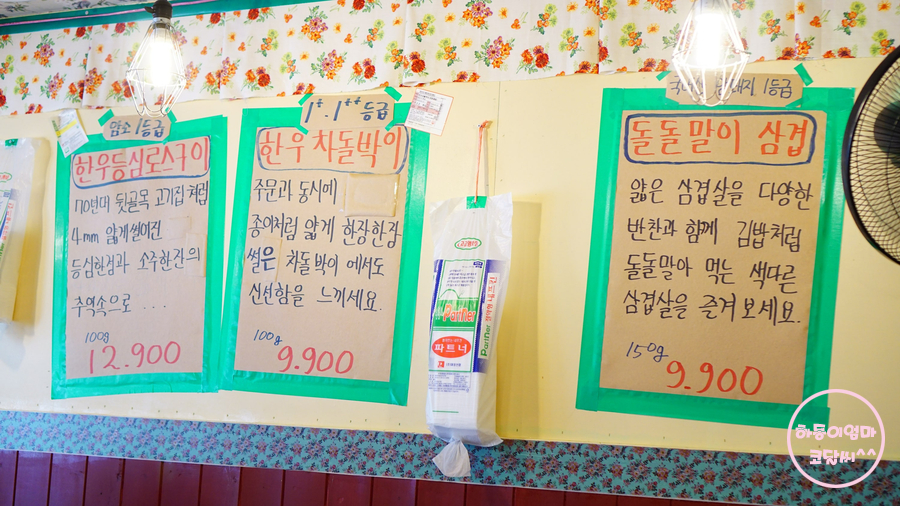 암소 1등급
한우등심로스구이
70년대 뒷골목 고기집처럼
4mm 얇게썰어진
등심한점과 소주한잔의
추억속으로 ...
100g
12.900
1⁺.1⁺⁺등급
한우 차돌박이
주문과 동시에
종이처럼 얇게 한장한장
썰은 차돌박이 에서도
신선함을 느끼세요.
100g
9.900
Partner
파트너
1등급
돌돌말이 삼겹
얇은 삼겹살을 다양한
반찬과 함께 김밥처럼
돌돌말아 먹는 색다른
삼겹살을 즐겨보세요.
150g
9.900
하동이엄마
코닿씨^^